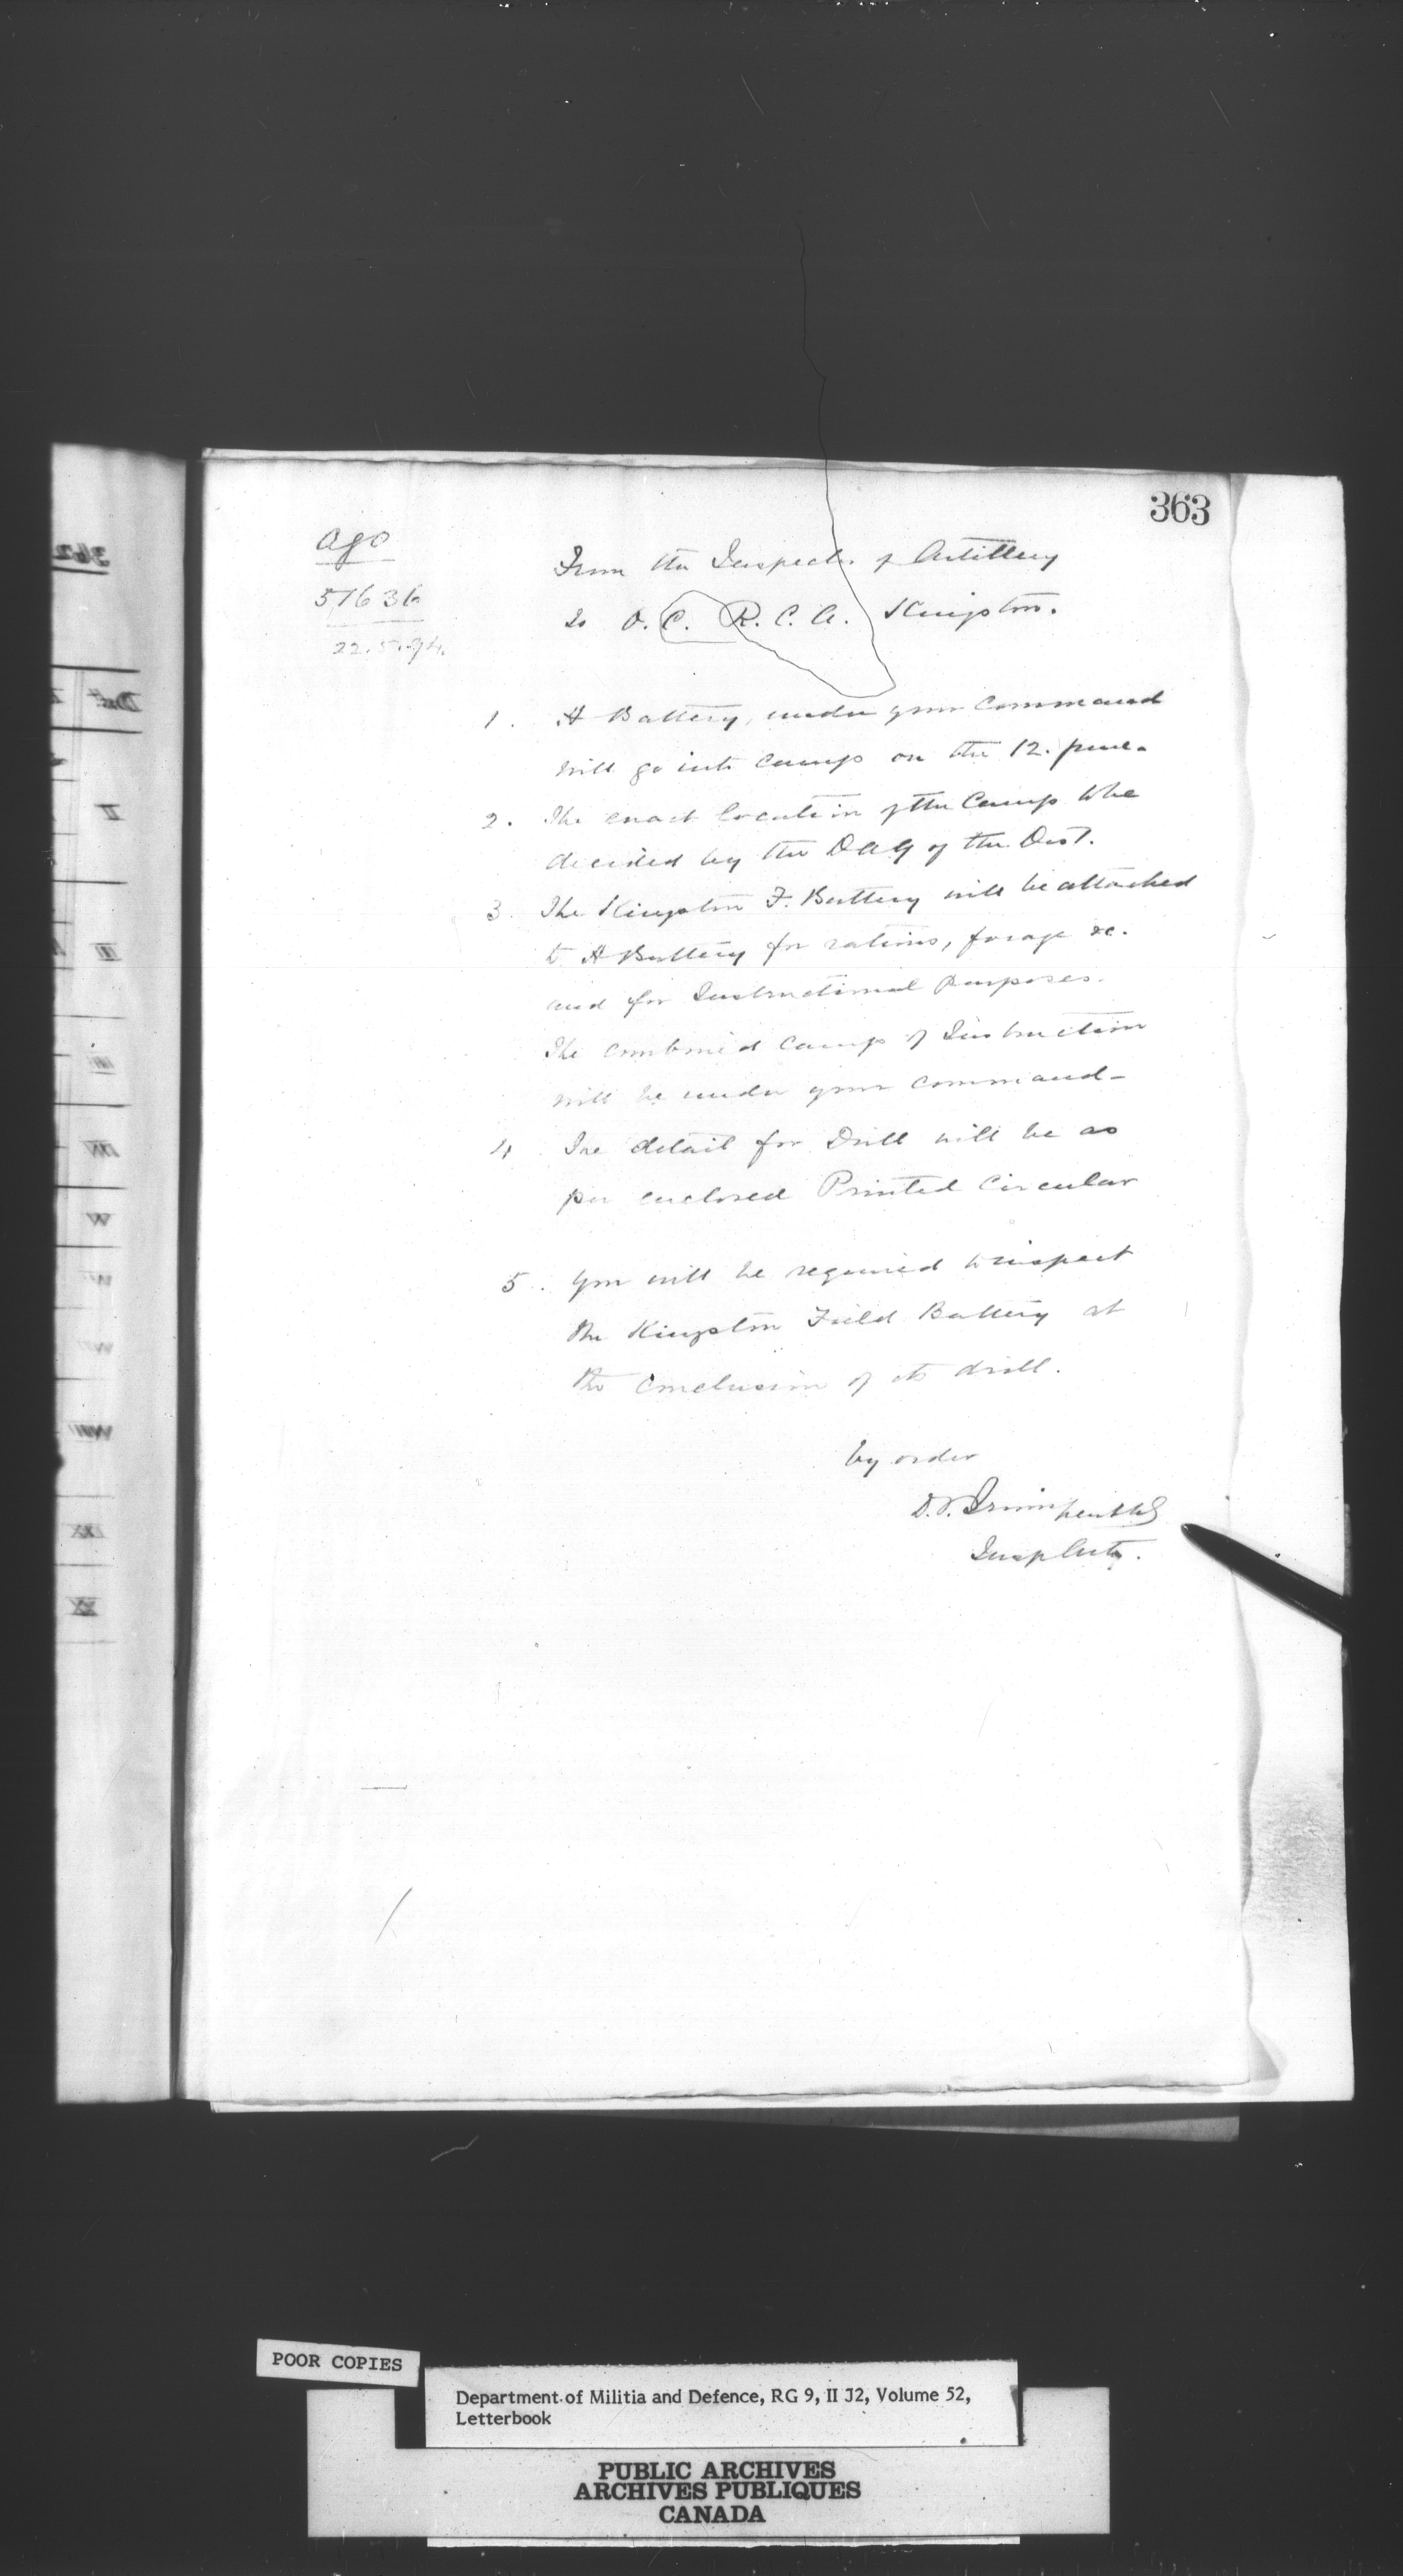 363
AGO
57636
22.5.94.
From the Inspector of Artillery
To O.C. R.C.A. Kingston.
1. A Battery, under your command
will go into camp on the 12. June.
2. The exact location of the Camp to be
decided by the DAG of the Dist.
3. The Kingston F. Battery will be attached
to A Battery for rations, forage &c.
and for Instructional purposes.
The combined Camp of Instruction
will be under your command-
4 The detail for Drill will be as
per enclosed Printed Circular
5. You will be required to inspect
the Kingston Field Battery at
the conclusion of its drill.
by order
D.T. Irwin
POOR COPIES
Department of Militia and Defence, RG 9, II J2, Volume 52,
Letterbook
PUBLIC ARCHIVES
ARCHIVES PUBLIQUES
CANADA